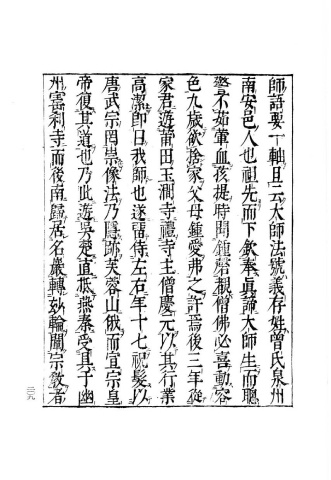 師語要一軸且云大師法號義存姓曾氏泉州
南安邑人也祖先而下欽奉眞諦大師生而聰
警不茹葷血孩提時聞鍾磬觀僧佛必喜動容
色九歲欲捨家父母鍾愛弗之許焉後三年從
家君遊莆田玉澗寺禮寺主僧慶元以其行業
高潔卽曰我師也遂留侍左右年十七祝髮以
唐武宗罔崇像法乃隱跡芙蓉山俄而宣宗皇
帝復其道也乃北遊吳楚直抵燕秦受具于幽
州寶刹寺而後南歸居名巖轉妙輪闡宗敎者